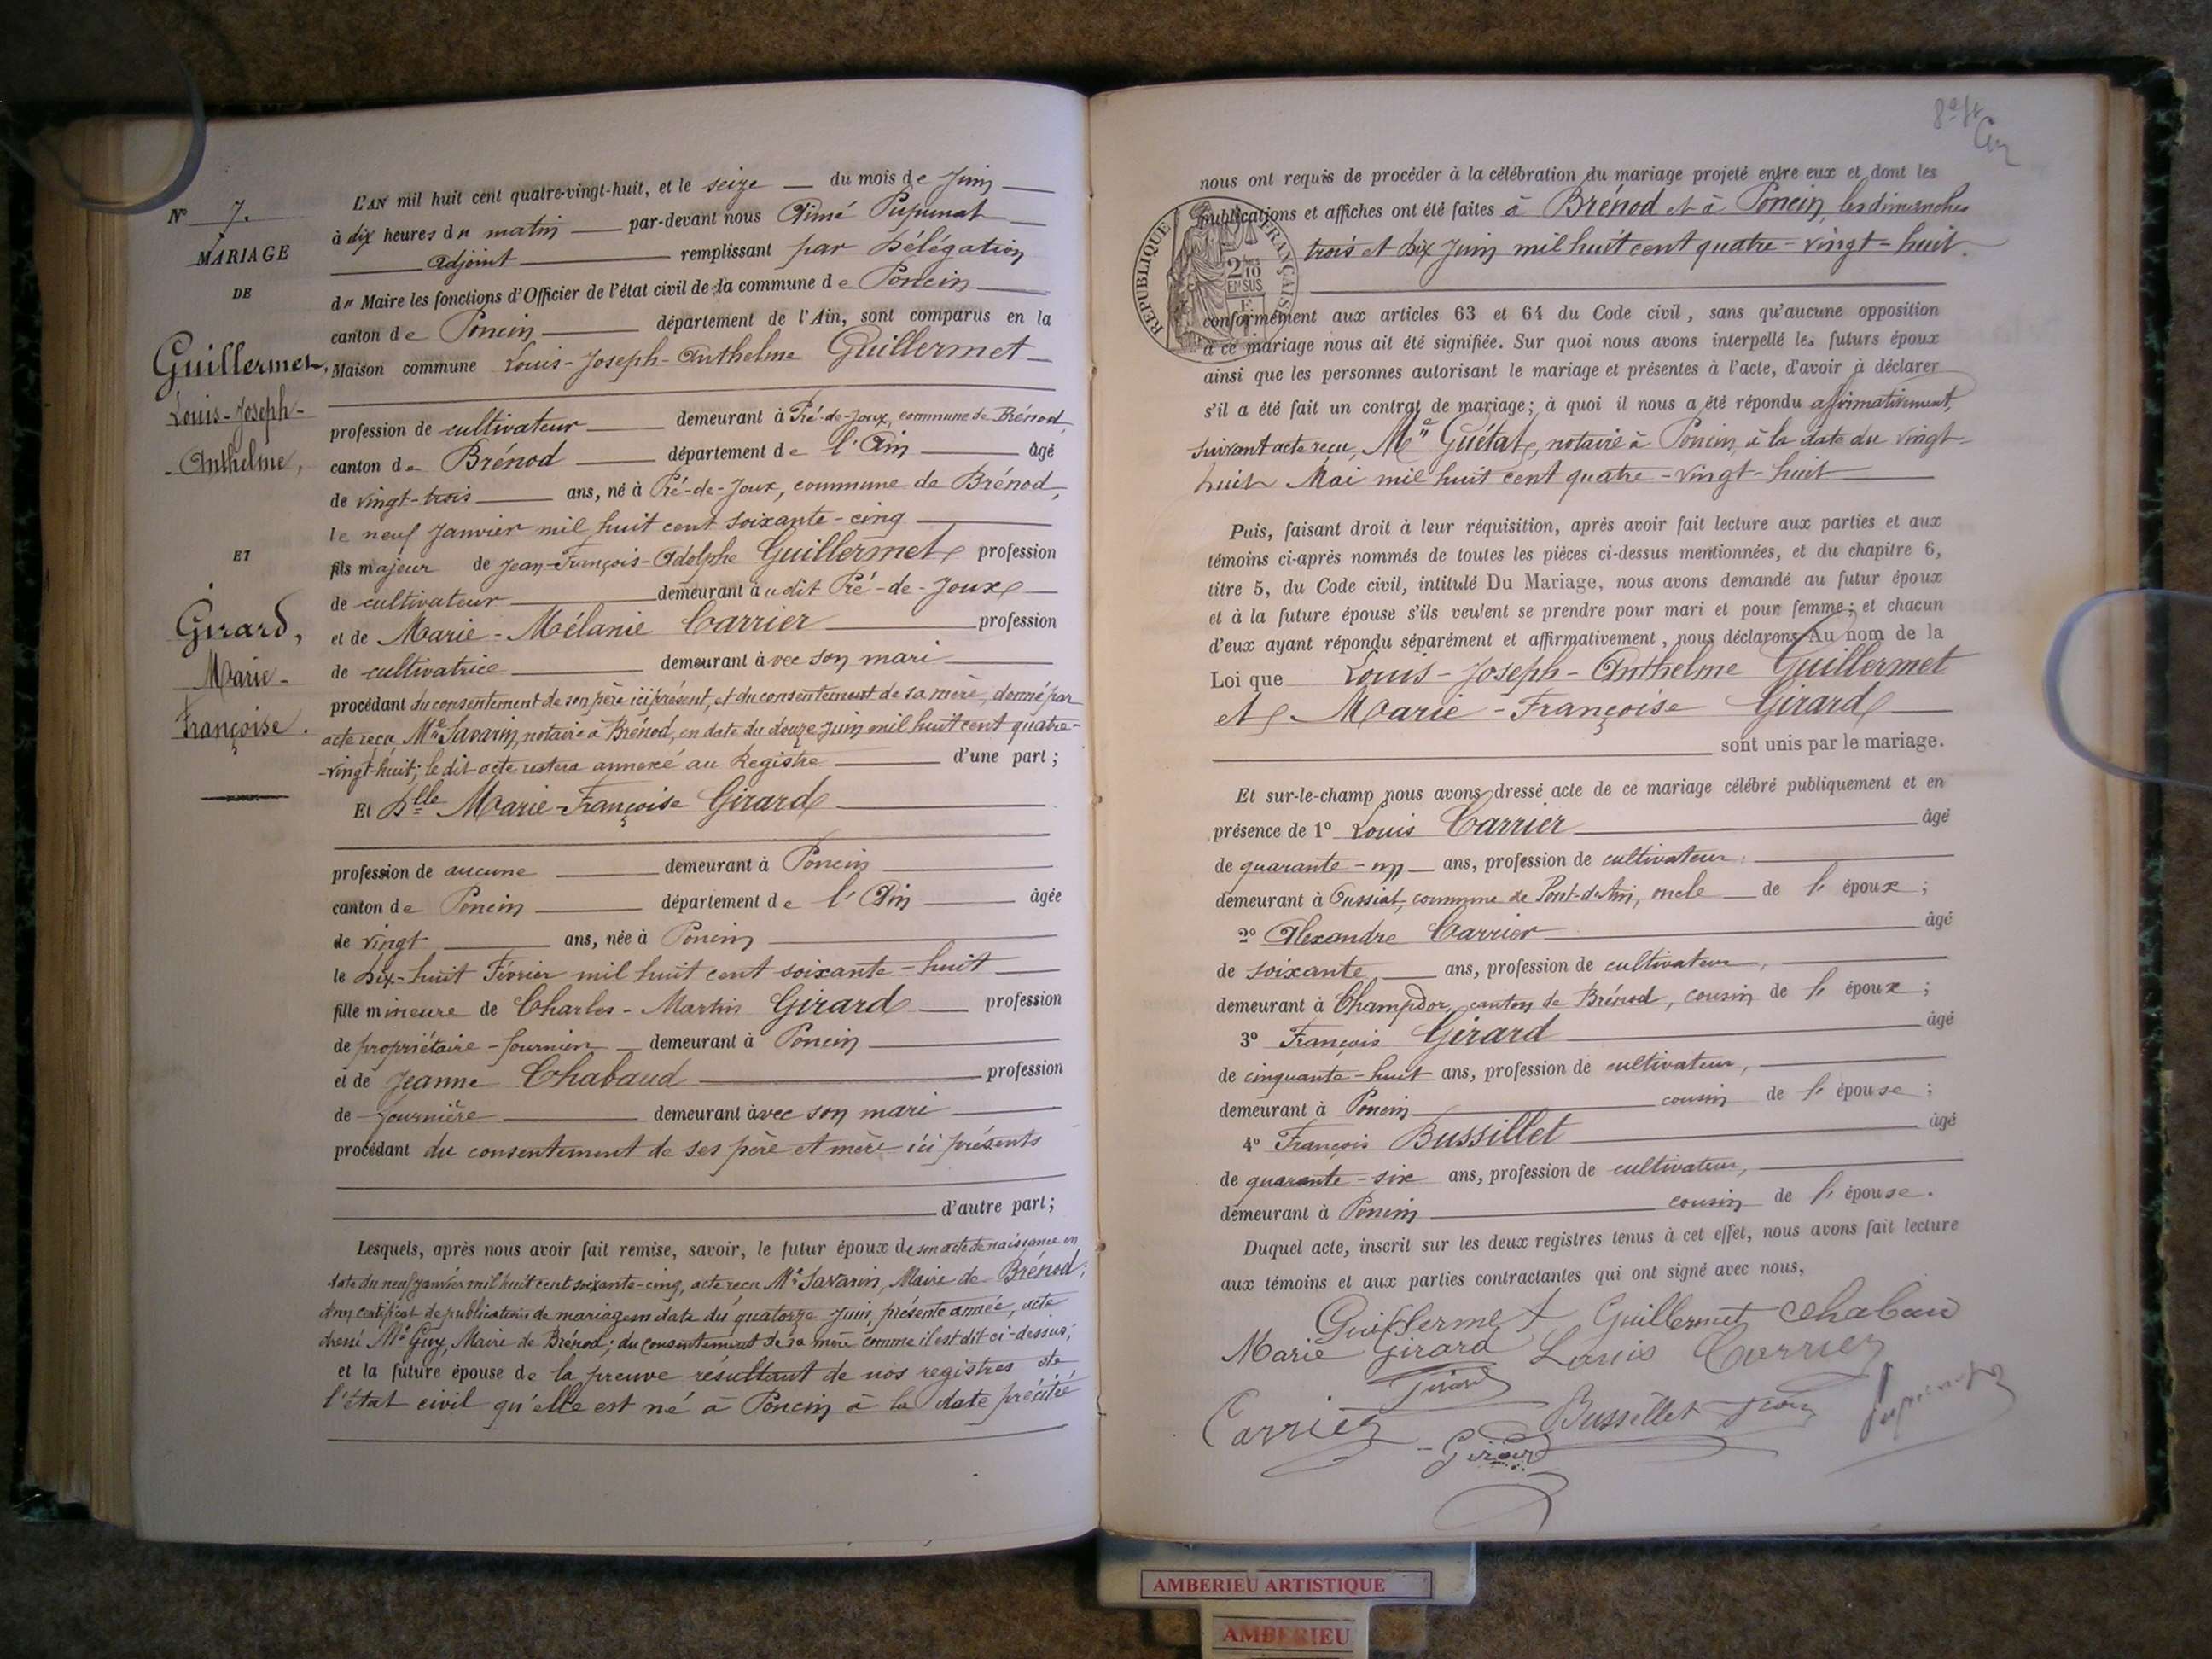 N° 7.
MARIAGE
DE
Guillermet,
Louis-Joseph-
-Anthelme,
ET
Girard,
Marie-
Françoise.
L'AN mil huit cent quatre-vingt-huit, et le seize du mois de Juin
à dix heures du matin par-devant nous Aimé Pupunat
adjoint remplissant par Délégation
du Maire les fonctions d'Officier de l'état civil de la commune de Poncin
canton de Poncin département de l'Ain, sont comparus en la
Maison commune Louis-Joseph-Anthelme Guillermet
profession de cultivateur demeurant à Pré-de-Joux, commune de Brénod,
canton de Brénod département de l'Ain âgé
de vingt-trois ans, né à Pré-de-Joux, commune de Brénod,
le neuf Janvier mil huit cent soixante-cinq
fils majeur de Jean-François-Adolphe Guillermet, profession
de cultivateur demeurant audit Pré-de-Joux
et de Marie-Mélanie Carrier profession
de cultivatrice demeurant avec son mari
procédant du consentement de son père ici présent, et du consentement de sa mère, donné par
acte reçu Me Savarin, notaire à Brénod, en date du douze Juin mil huit cent quatre-
-vingt-huit; le dit acte restera annexé au Registre d'une part;
Et Dlle Marie-Françoise Girard
profession de aucune demeurant à Poncin
canton de Poncin département de l'Ain âgée
de vingt ans, née à Poncin
le dix-huit Février mil huit cent soixante-huit
fille mineure de Charles-Martin Girard profession
de propriétaire-fournier demeurant à Poncin
et de Jeanne Chabaud profession
de fournière demeurant avec son mari
procédant du consentement de ses père et mère ici présents
d'autre part;
Lesquels, après nous avoir fait remise, savoir, le futur époux de son acte de naissance en
date du neuf Janvier mil huit cent soixante-cinq, acte reçu Mr Savarin, Maire de Brénod;
d'un certificat de publications de mariage en date du quatorze Juin, présente année, acte
dressé Mr Guy, Maire de Brénod; du consentement de sa mère comme il est dit ci-dessus;
et la future épouse de la preuve résultant de nos registres de
l'état civil qu'elle est né à Poncin à la date précitée
nous ont requis de procéder à la célébration du mariage projeté entre eux et dont les
publications et affiches ont été faites à Brénod et à Poncin, les dimanches
trois et dix Juin mil huit cent quatre-vingt-huit.
RÉPUBLIQUE FRANÇAISE
2/10
EN SUS
conformément aux articles 63 et 64 du Code civil, sans qu'aucune opposition
à ce mariage nous ait été signifiée. Sur quoi nous avons interpellé les futurs époux
ainsi que les personnes autorisant le mariage et présentes à l'acte, d'avoir à déclarer
s'il a été fait un contrat de mariage; à quoi il nous a été répondu affirmativement,
suivant acte reçu, Me Guétat, notaire à Poncin, à la date du vingt-
huit Mai mil huit cent quatre-vingt-huit
Puis, faisant droit à leur réquisition, après avoir fait lecture aux parties et aux
témoins ci-après nommés de toutes les pièces ci-dessus mentionnées, et du chapitre 6,
titre 5, du Code civil, intitulé Du Mariage, nous avons demandé au futur époux
et à la future épouse s'ils veulent se prendre pour mari et pour femme; et chacun
d'eux ayant répondu séparément et affirmativement, nous déclarons Au nom de la
Loi que Louis-Joseph-Anthelme Guillermet
et Marie-Françoise Girard
sont unis par le mariage.
Et sur-le-champ nous avons dressé acte de ce mariage célébré publiquement et en
présence de 1° Louis Carrier âgé
de quarante-un ans, profession de cultivateur
demeurant à Oussiat, commune de Pont-d'Ain, oncle de l'époux;
2° Alexandre Carrier âgé
de soixante ans, profession de cultivateur,
demeurant à Champdor, canton de Brénod, cousin de l'époux;
3° François Girard âgé
de cinquante-huit ans, profession de cultivateur,
demeurant à Poncin cousin de l'épouse;
4° François Bussillet âgé
de quarante-six ans, profession de cultivateur,
demeurant à Poncin cousin de l'épouse.
Duquel acte, inscrit sur les deux registres tenus à cet effet, nous avons fait lecture
aux témoins et aux parties contractantes qui ont signé avec nous,
Guillermet Guillermet Chabau
Marie Girard Louis Carrier
Girard
Carrier Bussillet Pupunat
Girard
AMBERIEU ARTISTIQUE
AMBERIEU